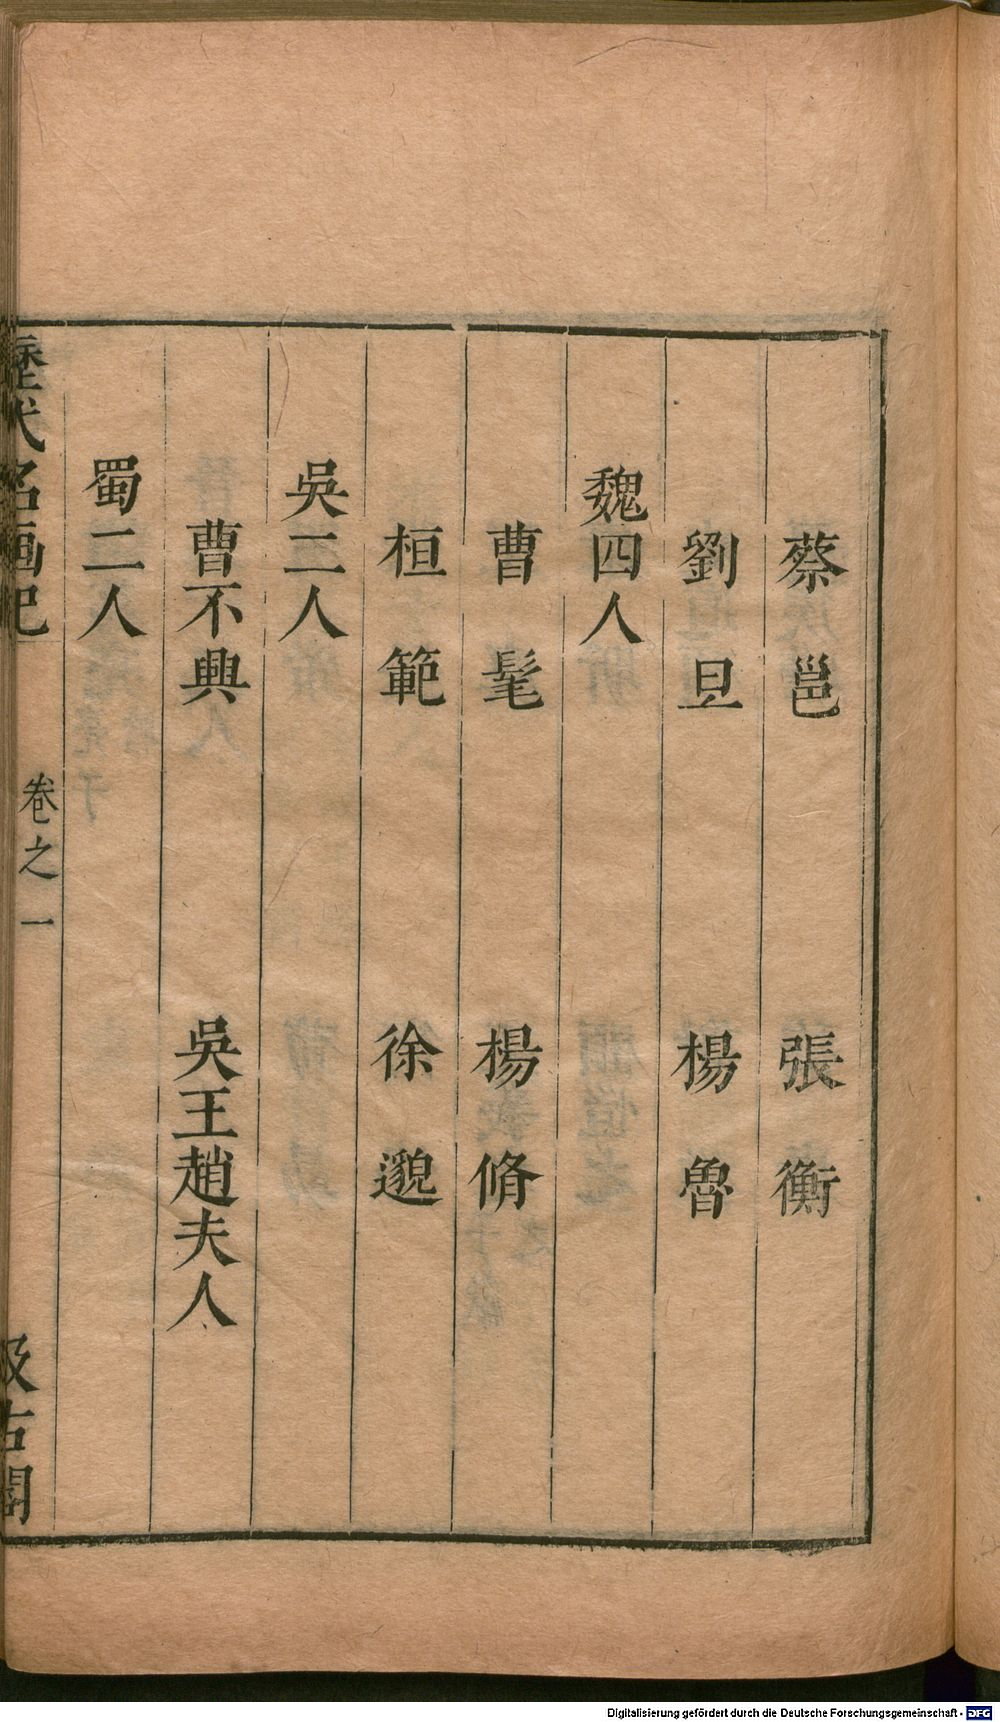 蔡邕 張衡
劉旦 楊魯
魏四人
曹髦 楊脩
桓範 徐邈
吳二人
曹不興 吳王趙夫人
蜀二人
歷代名画記 卷之一 汲古閣
Digitalisierung gefördert durch die Deutsche Forschungsgemeinschaft - DFG